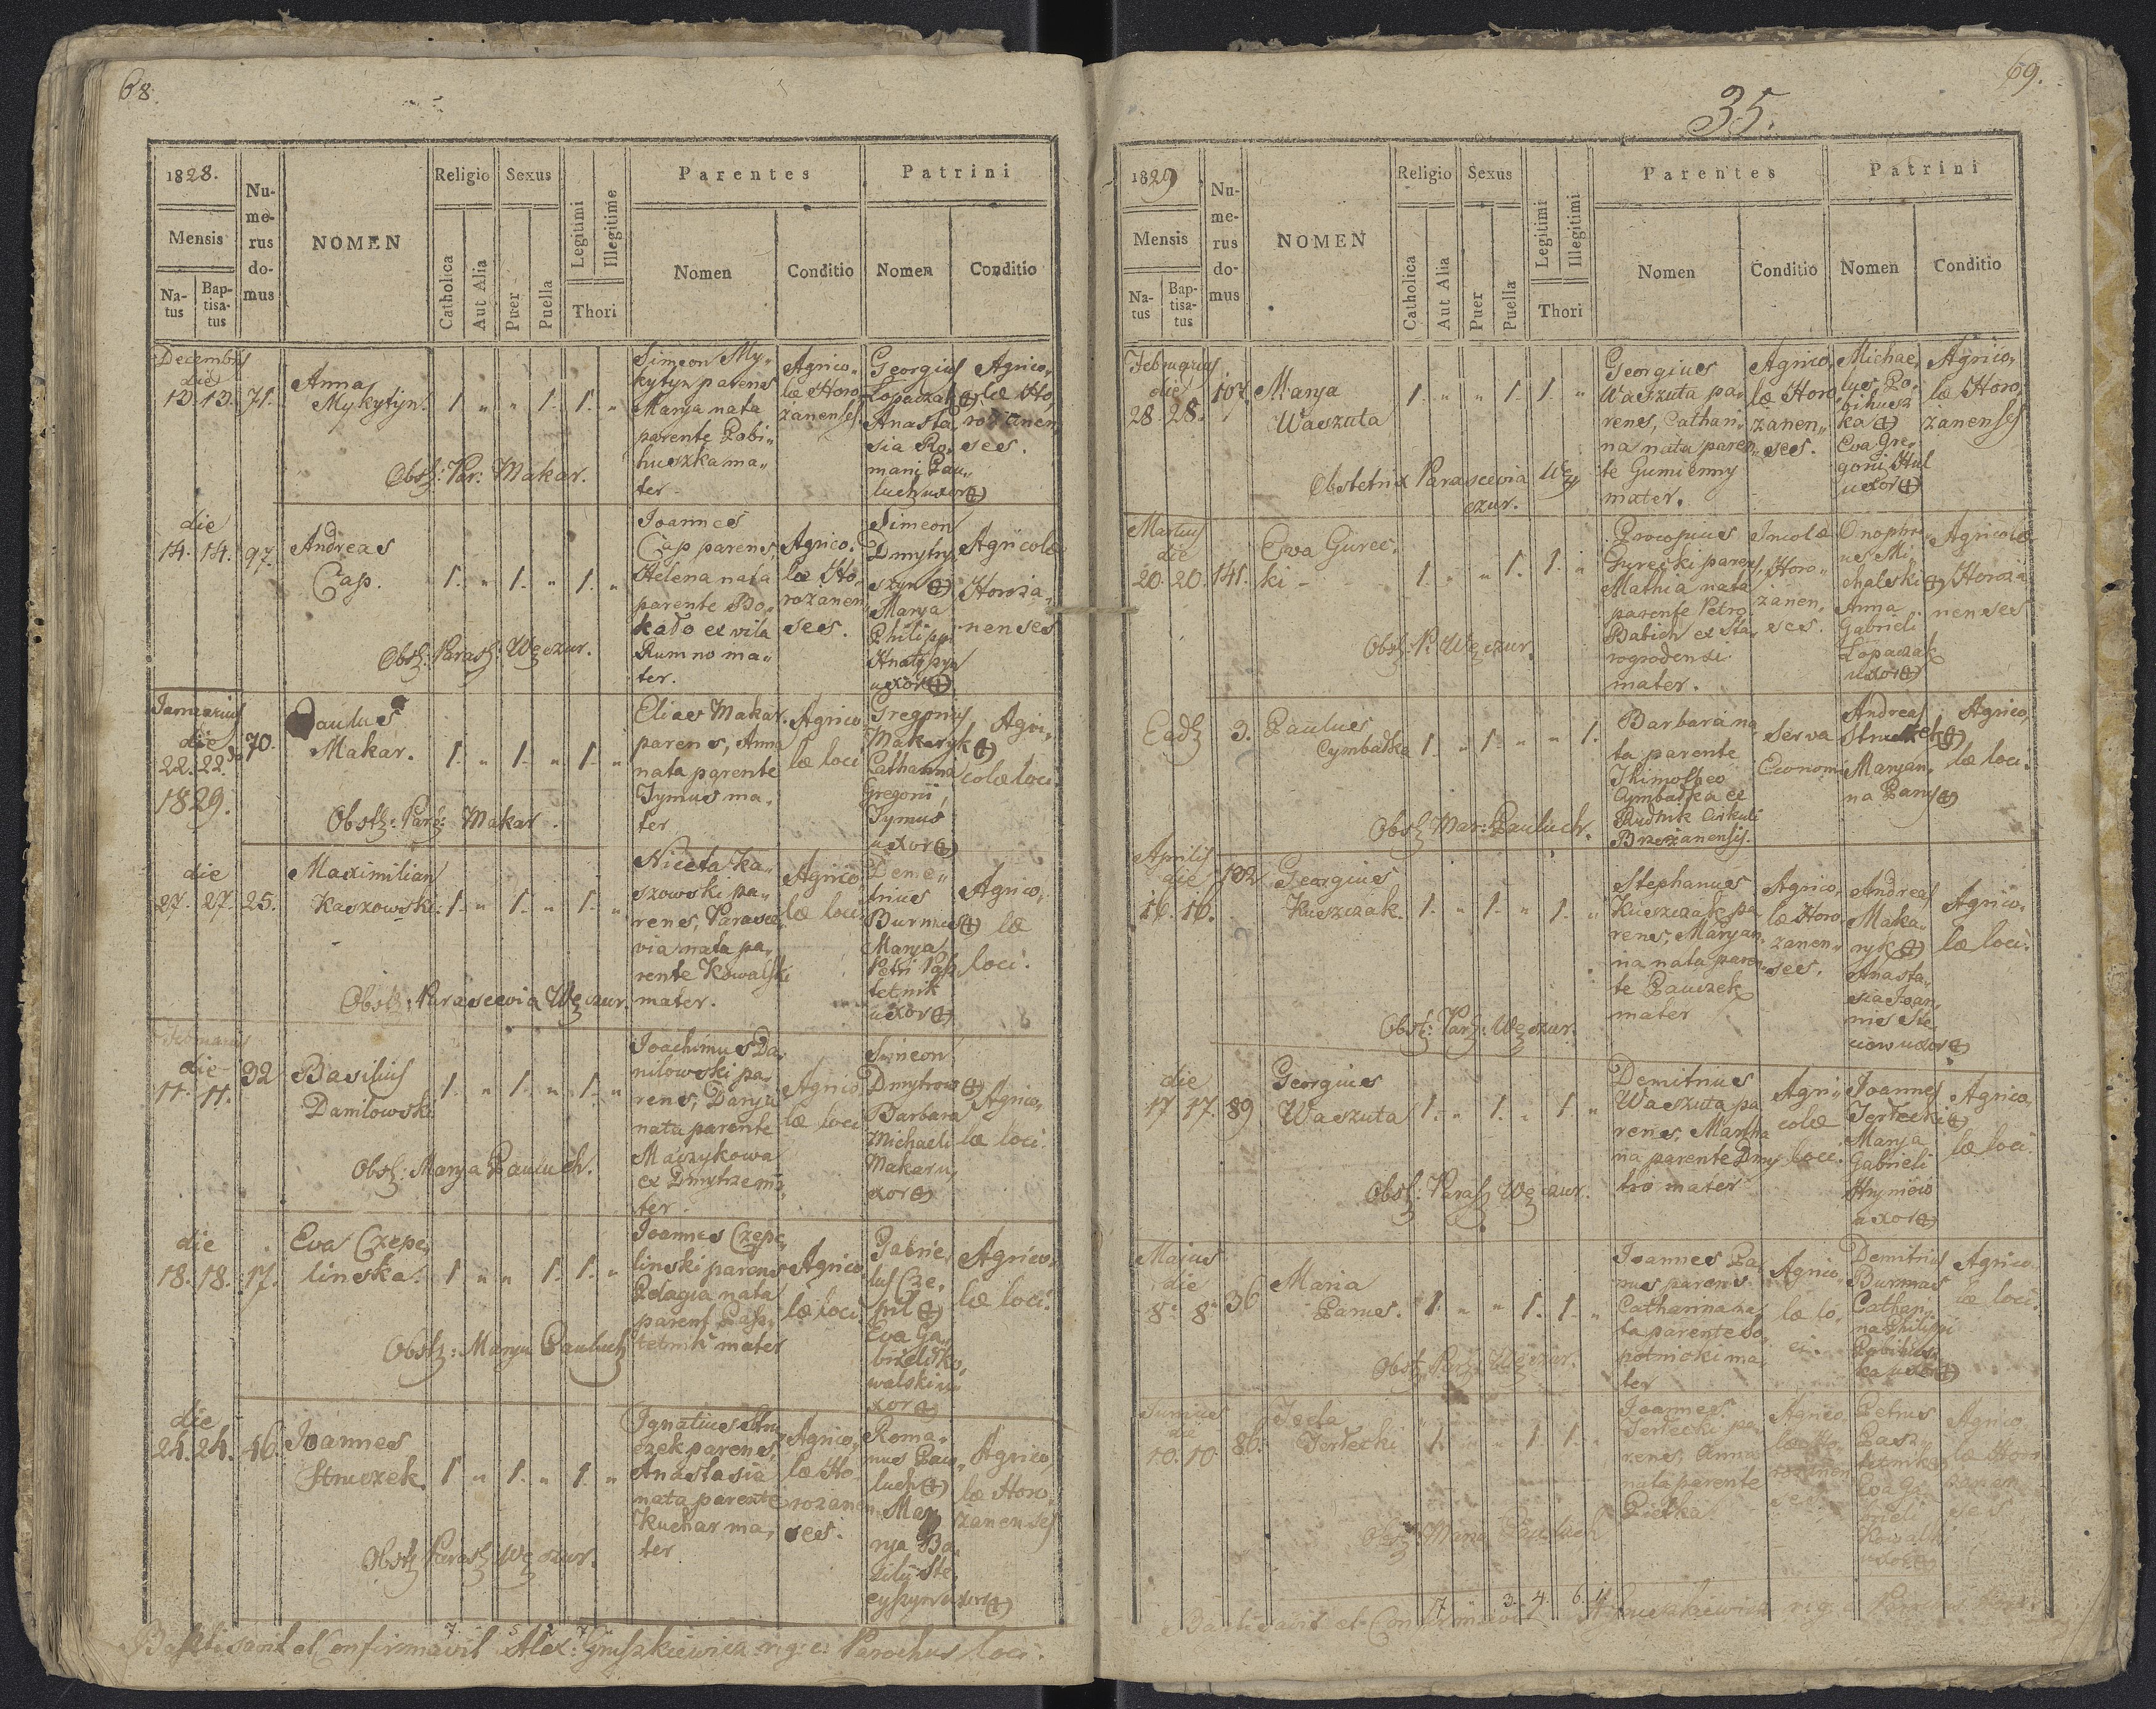 68.
1828.
Mensis
Na-
tus
Bap-
tisa-
tus
Nu-
me-
rus
do-
mus
NOMEN
Religio
Catholica
Aut Alia
Sexus
Puer
Puella
Legitimi
Illegitime
Thori
Parentes
Nomen
Conditio
Patrini
Nomen
Conditio
Decembris
die
13. 13. 71.
Anna
Mykytyn.
1. " " 1. 1. "
Simeon My-
kytyn parens
Marya nata
parente Pobi-
huszka ma-
ter
Agrico-
læ Horo,
zanenses
Georgius
Lopaczak
Anasta,
sia Ro,
mani Pau-
luch uxor
Agrico-
læ Ho,
rozanen
ses.
Obst: Par: Makar.
die
14. 14. 97.
Andreas
Cap.
1. " 1. " 1. "
Joannes
Cap parens,
Helena nata
parente Bo,
kało ex vila
Rumno ma-
ter.
Agrico.
læ Ho-
rozanen
ses.
Simeon
Dmytry
szyn
Marya
Philipp
Hnatyszyn
uxor
Agricolæ
Horoza,
nenses
Obst: Paras: Węczur.
Januarius
die
22. 22. 70.
1829.
Paulus
Makar.
1. " 1. " 1. "
Elias Makar
parens, Anna
nata parente
Tymus ma,
ter
Agrico
læ loci
Gregorius
Makaryk
Catharina
Gregorii
Tymus
uxor
Agri,
colæ loci
Obst: Par: Makar.
die
27. 27. 25.
Maximilian
Kaszowski.
1. " 1. " 1. "
Niceta Ka-
szowski pa-
rens, Parasce,
via nata pa,
rente Kowalski
mater.
Agrico,
læ loci
Deme-
trius
Burmas
Marya
Petri Pasz
tetnik
uxor
Agrico,
læ
loci.
Obst: Parascevia Węczur.
Februarius
die
11. 11. 32
Basilius
Danilowski
1. " 1. " 1. "
Joachimus Da,
nilowski pa,
rens, Darya
nata parente
Maczykowa
ex Dmytrze ma,
ter.
Agrico
læ loci
Simeon
Dmytrow
Barbara
Michaeli
Makar u,
xor
Agrico,
læ loci.
Obst: Marya Pauluch.
die
18. 18. 17.
Eva Czepe,
linska.
1 " " 1. 1. "
Joannes Czepe,
linski parens
Pelagia nata
parent Pasz,
tetnik mater
Agrico
læ loci
Gabrie,
lus Cze,
pil
Eva Ga,
brieli Ko,
walski u
xor
Agrico,
læ loci.
Obst: Marya Pauluch
die
24. 24. 46.
Joannes
Struczek.
1 " 1. " 1. "
Ignatius Stru,
czek parens,
Anastasia
nata parente
Kuchar ma,
ter
Agrico,
læ Ho-
rozanen
ses.
Roma-
nus Pau,
luch
Mar
rya Ba,
silij Ste,
cyszyn uxor
Agrico,
læ Horo,
zanenses
Obst: Paras: Węczur.
7. 5. 2 7
Baptisavit et Confirmavit Alex: Gruszkiewicz r: g: c: Parochus loci.
69.
35.
1829
Mensis
Na-
tus
Bap-
tisa-
tus
Nu-
me-
rus
do-
mus
NOMEN
Religio
Catholica
Aut Alia
Sexus
Puer
Puella
Legitimi
Illegitimi
Thori
Parentes
Nomen
Conditio
Patrini
Nomen
Conditio
Februarius
die
28. 28. 107.
Marya
Waszuta
1. " " 1. 1. "
Georgius
Waszuta pa,
rens, Cathari
na nata paren,
te Gumienny
mater.
Agrico,
læ Horo,
zanen,,
ses.
Michae,
lus Po,
bihusz
ka
Eva Gre,
gorii Hul
uxor
Agrico,
læ Horo,
zanenses
Obstetrix Parascevia Wę
czur.
Martius
die
20. 20. 141.
Ewa Gurec.
ki -
1. " " 1. 1. "
Procopius
Gurecki parens,
Mathia nata
parente Petro
Babich ex Sta,
rogrodensi
mater.
Incolæ
Horo-
zanen,
ses.
Onophri
us Mi
chalski
Anna
Gabrieli
Lopaczak
uxor
Agricolæ
Horoza
nenses
Obst: P: Węczur.
Ead. 3.
Paulus
Cymbałka
1. " 1. " " 1.
Barbara na,
ta parente
Thimotheo
Cymbałka ex
Rudnik Cirkuli
Brzezanensis.
Serva
Economi
Andreas
Struczek
Maryan,
na Panas
Agrico,
læ loci.
Obst: Mar: Pauluch.
Aprilis
die
16. 16. 132
Georgius
Kuszczak.
1. " 1. " 1. "
Stephanus
Kuszczak pa
rens, Maryan,
na nata paren
te Pauczek
mater
Agrico,
læ Horo
zanen-
ses.
Andreas
Maka-
ryk
Anasta,
sia Joan,
nis Ste
ciow uxor
Agrico,
læ loci.
Obst: Par: Węczur.
die
17 17. 89
Georgius
Waszuta
1. " 1. " 1. "
Demitrius
Waszuta pa
rens, Martha
na parente Dmy
tro mater
Agri-
colæ
loci.
Joannes
Terlecki
Marya
Gabrieli
Hryniciw
uxor
Agrico,
læ loci.
Obst: Paras: Węczur.
Majus
die
8. 8. 36
Maria
Panas.
1. " " 1. 1. "
Joannes Pa
nas parens
Catharina na
ta parente So,
potnicki ma,
ter
Agrico
læ lo,
ci.
Demitrius
Burmas
Cathari,
na Philippi
Pobihusz
ka uxor
Agrico
læ loci.
Obst: Par: Węczur.
Junius
die
10. 10 86.
Tecla
Terlecki
1. " " 1. 1. "
Joannes
Terlecki pa,
rens, Anna
nata parente
Pietka
Agrico,
læ Ho,
rozanen
ses
Petrus
Pasz,
tetnik
Eva Ga
brieli
Kowalski
uxor
Agrico
læ Horo
zanen
ses
Obst: Maria Pauluch
7. " 3. 4. 6. 1
Baptisavit et Confirmavit Gruszkiewicz r: g: c: Parochus loci.